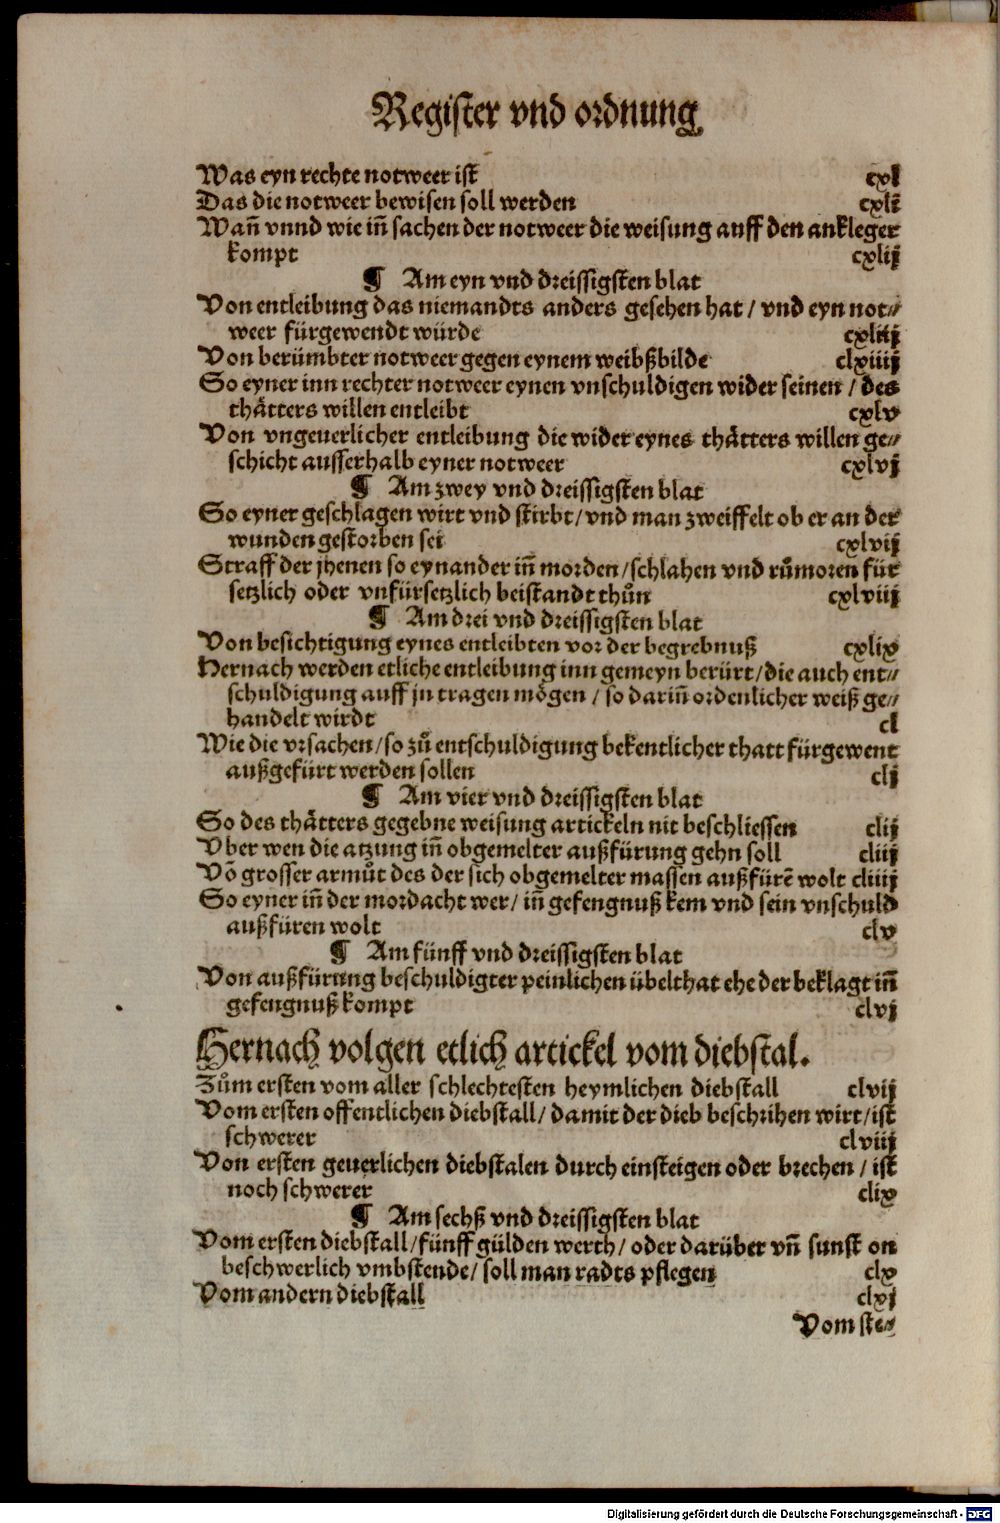 Register vnd ordnung
Was eyn rechte notweer ist cxl
Das die notweer bewisen soll werden cxlj
Wañ vnnd wie iñ sachen der notweer die weisung auff den ankleger
kompt cxlij
¶ Am eyn vnd dreissigsten blat
Von entleibung das niemandts anders gesehen hat / vnd eyn not⸗
weer fürgewendt würde cxliij
Von berümbter notweer gegen eynem weibßbilde clxiiij
So eyner inn rechter notweer eynen vnschuldigen wider seinen / des
thätters willen entleibt cxlv
Von vngeuerlicher entleibung die wider eynes thätters willen ge⸗
schicht ausserhalb eyner notweer cxlvj
¶ Am zwey vnd dreissigsten blat
So eyner geschlagen wirt vnd stirbt / vnd man zweiffelt ob er an der
wunden gestorben sei cxlvij
Straff der jhenen so eynander iñ morden / schlahen vnd růmoren für
setzlich oder vnfürsetzlich beistandt thůn cxlviij
¶ Am drei vnd dreissigsten blat
Von besichtigung eynes entleibten vor der begrebnuß cxlix
Hernach werden etliche entleibung inn gemeyn berürt / die auch ent⸗
schuldigung auff jn tragen mögen / so dariñ ordenlicher weiß ge⸗
handelt wirdt cl
Wie die vrsachen / so zů entschuldigung bekentlicher thatt fürgewent
außgefürt werden sollen clj
¶ Am vier vnd dreissigsten blat
So des thätters gegebne weisung artickeln nit beschliessen clij
Vber wen die atzung iñ obgemelter außfürung gehn soll cliij
Võ grosser armůt des der sich obgemelter massen außfürẽ wolt cliiij
So eyner iñ der mordacht wer / iñ gefengnuß kem vnd sein vnschuld
außfüren wolt clv
¶ Am fünff vnd dreissigsten blat
Von außfürung beschuldigter peinlichen übelthat ehe der beklagt iñ
gefengnuß kompt clvj
Hernach volgen etlich artickel vom diebstal.
Zům ersten vom aller schlechtesten heymlichen diebstall clvij
Vom ersten offentlichen diebstall / damit der dieb beschrihen wirt / ist
schwerer clviij
Von ersten geuerlichen diebstalen durch einsteigen oder brechen / ist
noch schwerer clix
¶ Am sechß vnd dreissigsten blat
Vom ersten diebstall / fünff gülden werth / oder darüber vñ sunst on
beschwerlich vmbstende / soll man radts pflegen clx
Vom andern diebstall clxj
Vom ste⸗
Digitalisierung gefördert durch die Deutsche Forschungsgemeinschaft - DFG